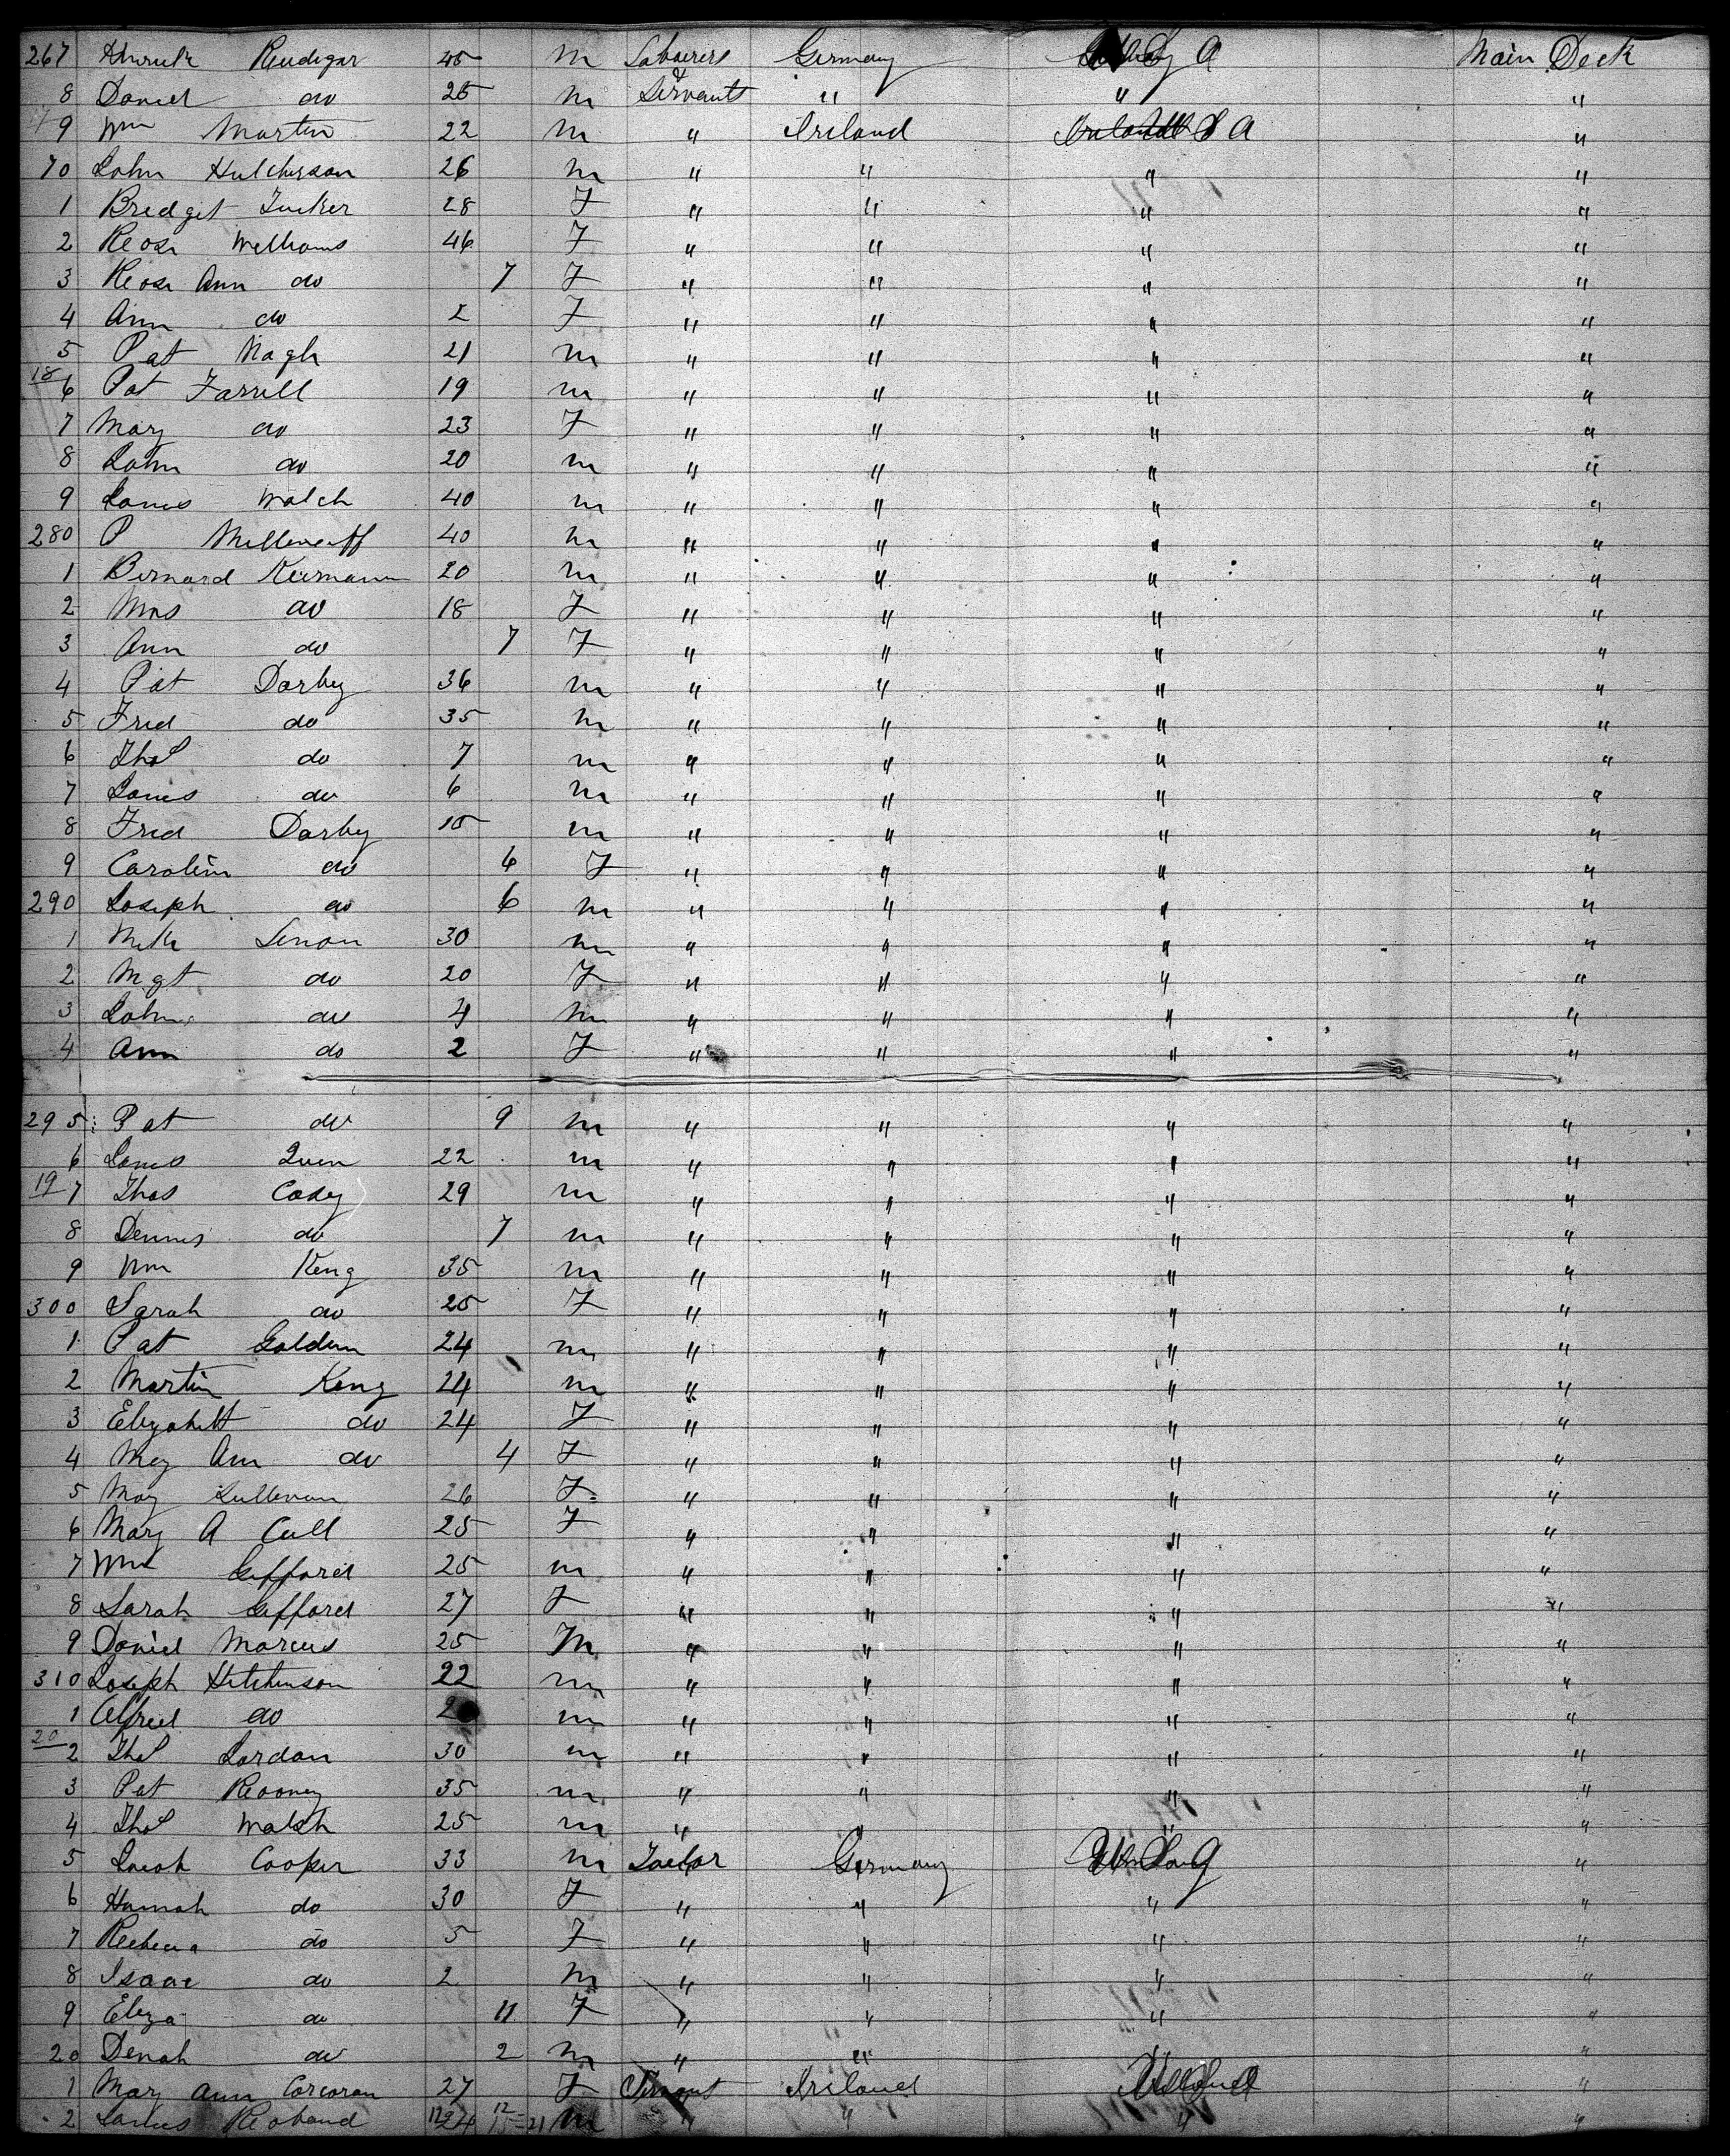 267 Rudiger 45 m Labourers Germany U S A Main Deck
8 Daniel do 25 m & Servants " " "
9 Wm Martin 22 m " Ireland Ireland U S A "
70 John Hutcherson 26 m " " " "
1 Bridget Tucker 28 F " " " "
2 Rose Williams 46 F " " " "
3 Rose Ann do 7 F " " " "
4 Ann do 2 F " " " "
5 Pat Nagh 21 m " " " "
18
6 Pat Farrell 19 m " " " "
7 Mary do 23 F " " " "
8 John do 20 m " " " "
9 James Walch 40 m " " " "
280 P 40 m " " " "
1 Bernard Keirnann 20 m " " " "
2 Mrs do 18 F " " " "
3 Ann do 7 F " " " "
4 Pat Darby 36 m " " " "
5 Fred do 35 m " " " "
6 Thos do 7 m " " " "
7 James do 6 m " " " "
8 Fred Darby 10 m " " " "
9 Carolin do 6 F " " " "
290 Joseph do 6 m " " " "
1 Lenon 30 m " " " "
2 Mgt do 20 F " " " "
3 John do 4 m " " " "
4 Ann do 2 F " " " "
295 Pat do 9 m " " " "
6 James Quin 22 m " " " "
19
7 Thos Cody 29 m " " " "
8 Dennis do 7 m " " " "
9 Wm King 35 m " " " "
300 Sarah do 25 F " " " "
1 Pat Golden 24 m " " " "
2 Martin King 24 m " " " "
3 do 24 F " " " "
4 May Ann do 4 F " " " "
5 May Sullivan 26 F " " " "
6 Mary A Cull 25 F " " " "
7 Wm Gifford 25 m " " " "
8 Sarah Gifford 27 F " " " "
9 Daniel Marcus 25 M " " " "
310 Joseph Hitchinson 22 m " " " "
1 Alfred do m " " " "
20
2 Thos Jordan 30 m " " " "
3 Pat Rooney 35 m " " " "
4 Thos Walsh 25 m " " " "
5 Cooper 33 m Tailor Germany "
6 Hannah do 30 F " " " "
7 Rebecca do 5 F " " " "
8 Isaac do 2 m " " " "
9 Eliza do 11 F " " " "
20 Denah do 2 m " " " "
1 Mary Ann Corcoran 27 F Servant Ireland "
2 24 m " " " "